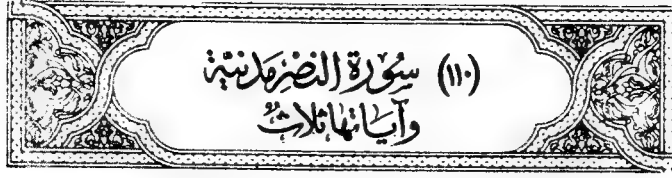 (١١٠) سُورَة النَصْر مَدَنيَّة
وآيَاتهَا ثلاثٌ